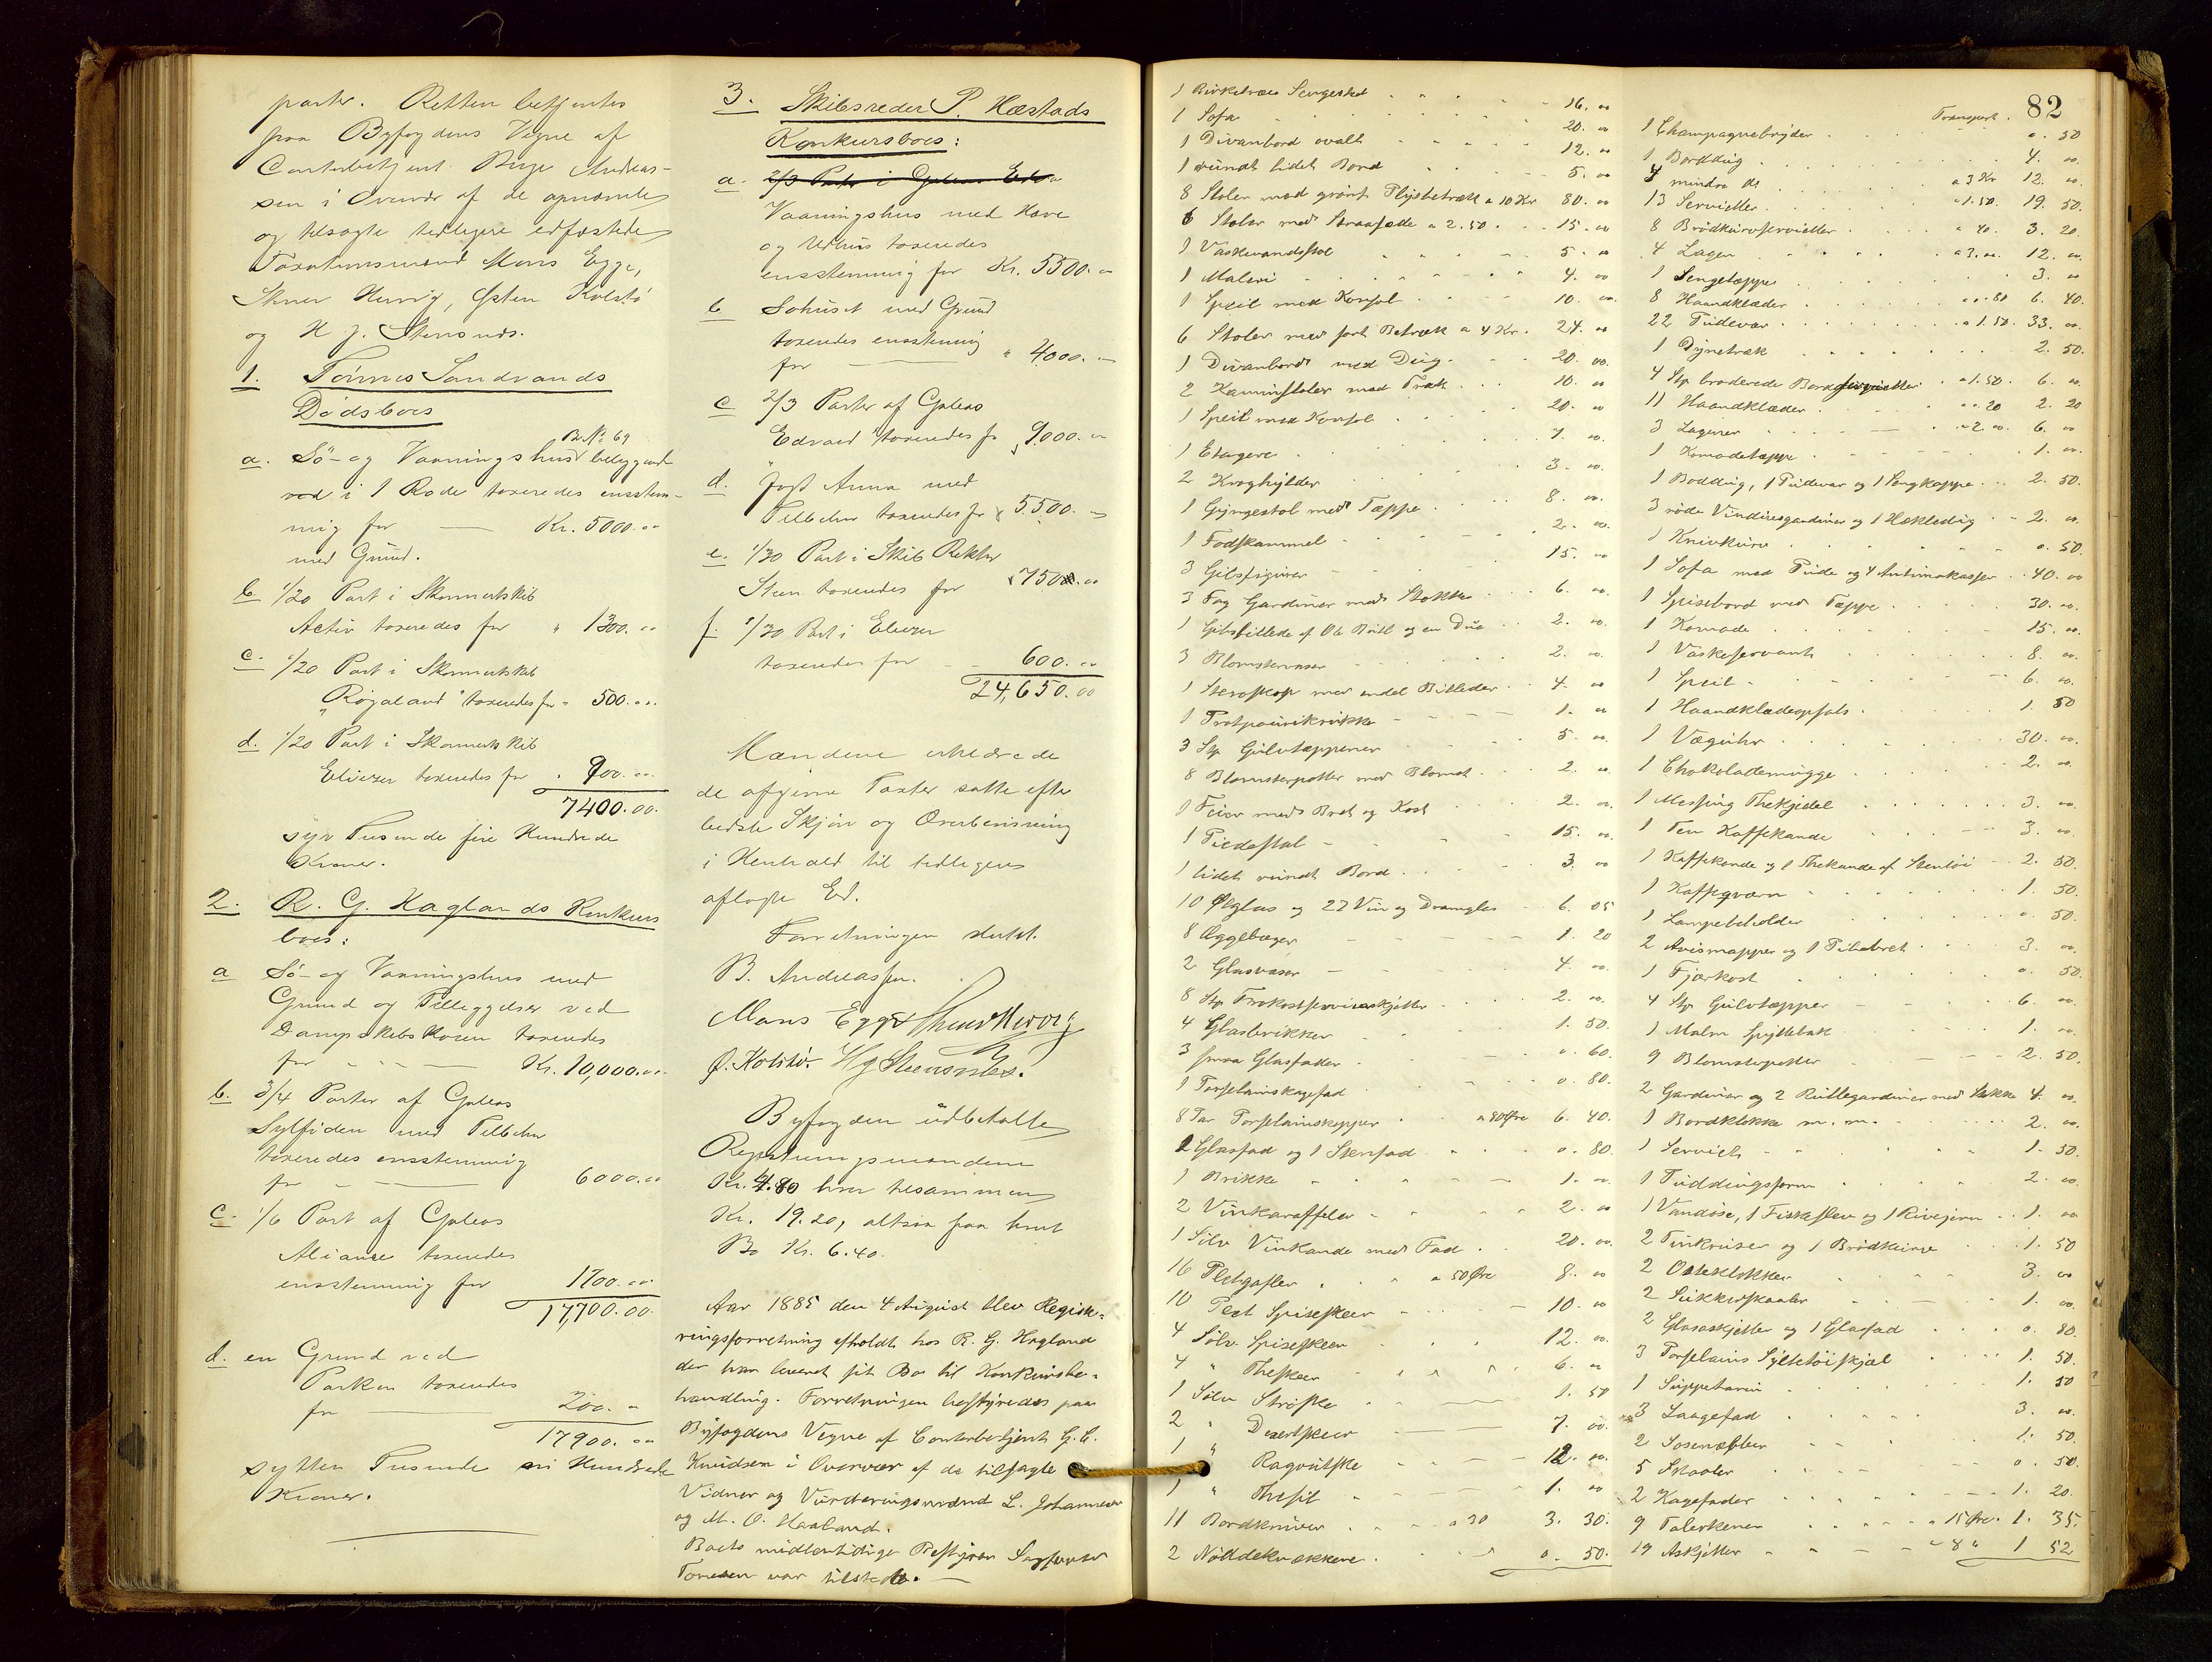 parter. Retten betjentes
paa Byfogdens Vegne af
Contorbetjent Birge Andreas-
sen i Overvær af de opnævnte
og tilsagte tidligere edfæstede
Taxationsmænd Mons Egge,
Skuer Hervig, Østen Kolstø
og H. J. Stensnæs.
1. Tønnes Sandvands
Dødsboes
B. No 69
a. Sø- og Vaaningshus beliggende
ved i 1 Rode taxeredes enstem-
mig for — Kr. 5000.00
med Grund.
b. 1/20 Part i Skonnertskib
Activ taxeredes for " 1300.00
c. 1/20 Part i Skonnertskib
"Rogaland" taxeredes for " 500.00
d. 1/20 Part i Skonnertskib
Eliezer taxeredes for " 900.00
7400.00.
syv Tusinde fire Hundrede
Kroner.
2. R. G. Haglands Konkurs
boes:
a Sø- og Vaaningshus med
Grund og Tilleggelser ved
Dampskibskaien taxeredes
for — Kr. 10,000.00
b. 3/4 Parter af Galeas
Sylfiden med Tilbehør
taxeredes enstemmig
for — 6000.00
c. 1/6 Part af Galeas
Aliance taxeredes
enstemmig for 1700.00
17,700.00.
d. en Grund ved
Parken taxeredes
for — 200.00
17900.00
sytten Tusinde ni Hundrede
Kroner.
3. Skibsreder P. Hæstads
Konkursboes:
a. 2/3 Parter i Galeas Edva
Vaaningshus med Have
og Udhus taxeredes
enstemmig for Kr. 5500.00
b Søhuset med Grund
taxeredes enstemmig
for — " 4000.—
c 2/3 Parter af Galeas
Edvard taxeredes for " 9000.00
d. Jagt Anna med
Tilbehør taxeredes for " 5500.—
e. 1/30 Part i Skib Rektor
Steen taxeredes for " 750.00
f. 1/30 Part i Eliezer
taxeredes for — 600.00
24,650.00
Mændene erklærede
de afgivne Taxter satte efter
bedste Skjøn og Overbevisning
i Henhold til tidligere
aflagte Ed.
Forretningen sluttet.
B. Andreassen.
Mons Egge Skuer Hervig
Ø. Kolstø. H J Stensnæs.
Byfogden udbetalte
Registreringsmændene
Kr. 4.80 hver tilsammen
Kr. 19.20, altsaa paa hvert
Bo Kr. 6.40.
Aar 1885 den 4 August blev Regist-
reringsforretning afholdt hos R. G. Hagland
der har leveret sit Bo til Konkursbe-
handling. Forretningen bestyredes paa
Byfogdens Vegne af Contorbetjent G. C.
Knudsen i Overvær af de tilsagte
Vidner og Vurderingsmænd L. Johannesen
og M. O. Haaland.
Boets midlertidige Bestyrer Sagfører
Tonesen var tilstede. —
1 Birketræes Sengested 16.00
1 Sofa 20.00
1 Divanbord ovalt 12.00
1 rundt lidet Bord 5.00
8 Stoler med grønt Plydsbetræk a 10 Kr 80.00
6 Stoler med Straasæde a 2.50 15.00
1 Vaskevandsstol 5.00
1 Maleri 4.00
1 Speil med Konsol 10.00
6 Stoler med sort Betræk a 4 Kr. 24.00
1 Divanbord med Dug 20.00.
2 Kaminstoler med Træk 10.00
1 Speil med Konsol 20.00
1 Etagere 7.00.
2 Kroghylder 3.00.
1 Gyngestol med Tæppe 8.00.
1 Fodskammel 2.00.
3 Gibsfigurer 15.00
3 Fag Gardiner med Stokke 6.00.
1 Gibsbillede af Ole Bull og en Due 2.00.
3 Blomstervaser 2.00.
1 Steroskop med endel Billeder 4.00
1 Potpourikrukke 1.00
3 Stk Gulvtæpper 5.00.
8 Blomsterpotter med Blomst 2.00
1 Feier med Bret og Kost 2.00
1 Piedestal 15.00.
1 lidet rundt Bord 3.00
10 Ølglas og 27 Vin og Dramglas 6.05
8 Æggebæger 1.20
2 Glasvaser 4.00.
8 Stk Frokostservieskjetter 2.00.
4 Glasbrikker 1.50.
3 smaa Glasfader 0.60.
1 Porselainskagefad 0.80.
8 Par Porselainskopper a 80 Øre 6.40.
2 Glasfad og 1 Stenfad 0.80.
1 Brikke 1.00.
2 Vinkaraffeler 2.00
1 Sølv Vinkande med Fad 20.00.
16 Pletgafler a 50 Øre 8.00
10 Plet Spiseskeer 10.00
4 Sølv Spiseskeer 12.00.
4 " Theskeer 6.00
1 Sølv Strøske 1.50
2 " Desertskeer 7.00.
1 " Ragoutske 12.00.
1 " Thesil 1.00
11 Bordkniver a 30 3.30.
2 Nøddeknækkere 0.50.
82
Transport.
1 Champagnebryder 0.50
1 Borddug 4.00.
4 mindre ds a 3 Kr 12.00.
13 Servietter a 1.50. 19.50.
8 Brødkurvservietter a 40. 3.20.
4 Lagen a 3.00. 12.00.
1 Sengetæppe 3.00
8 Haandklæder a 0.80 6.40.
22 Pudevar a 1.50. 33.00.
1 Dynetræk 2.50.
4 Stk broderede Bordservietter a 1.50. 6.00.
11 Haandklæder a 0.20 2.20
3 Lagener a 2.00. 6.00
1 Komodetæppe 1.00.
1 Borddug, 1 Pudevar og 1 Sengkappe 2.50.
3 røde Vinduesgardiner og 1 Hækledug 2.00.
1 Knivkurv 0.50.
1 Sofa med Pude og 4 Antimakasser 40.00
1 Spisebord med Tæppe 30.00.
1 Komode 15.00.
1 Vaskeservant 8.00.
1 Speil 6.00.
1 Haandklædeopsats 1.50
1 Væguhr 30.00.
1 Chokolademugge 2.00.
1 Messing Thekjedel 3.00.
1 Ten Kaffekande 3.00.
1 Kaffekande og 1 Thekande af Stentøi 2.50.
1 Kaffegværn 1.50.
1 Lampebeholder 0.50.
2 Avismapper og 1 Pibebret 3.00.
1 Fjærkost 0.50.
4 Stk Gulvtæpper 6.00.
1 Malm Spyttebak 1.00.
9 Blomsterpotter 2.50.
2 Gardiner og 2 Rullegardiner med Stokke 4.00.
1 Bordklokke m. m. 2.00.
1 Serviet 1.50.
1 Puddingsform 2.00.
1 Vandøse, 1 Fiskeslev og 1 Rivejern 1.00
2 Tinkruser og 1 Brødkurv 1.50
2 Osteklokker 3.00
2 Sukkerskaaler 1.00.
2 Glasaskjetter og 1 Glasfad 0.80.
3 Porselains Syltetøiskjæl 1.50.
1 Suppeterin 1.50
3 Laagefad 3.00.
2 Sosenæbber 1.50.
5 Skaaler 0.50.
2 Kagefader 1.20.
9 Talerkener a 15 Øre. 1.35.
19 Askjetter a 8 " 1 52